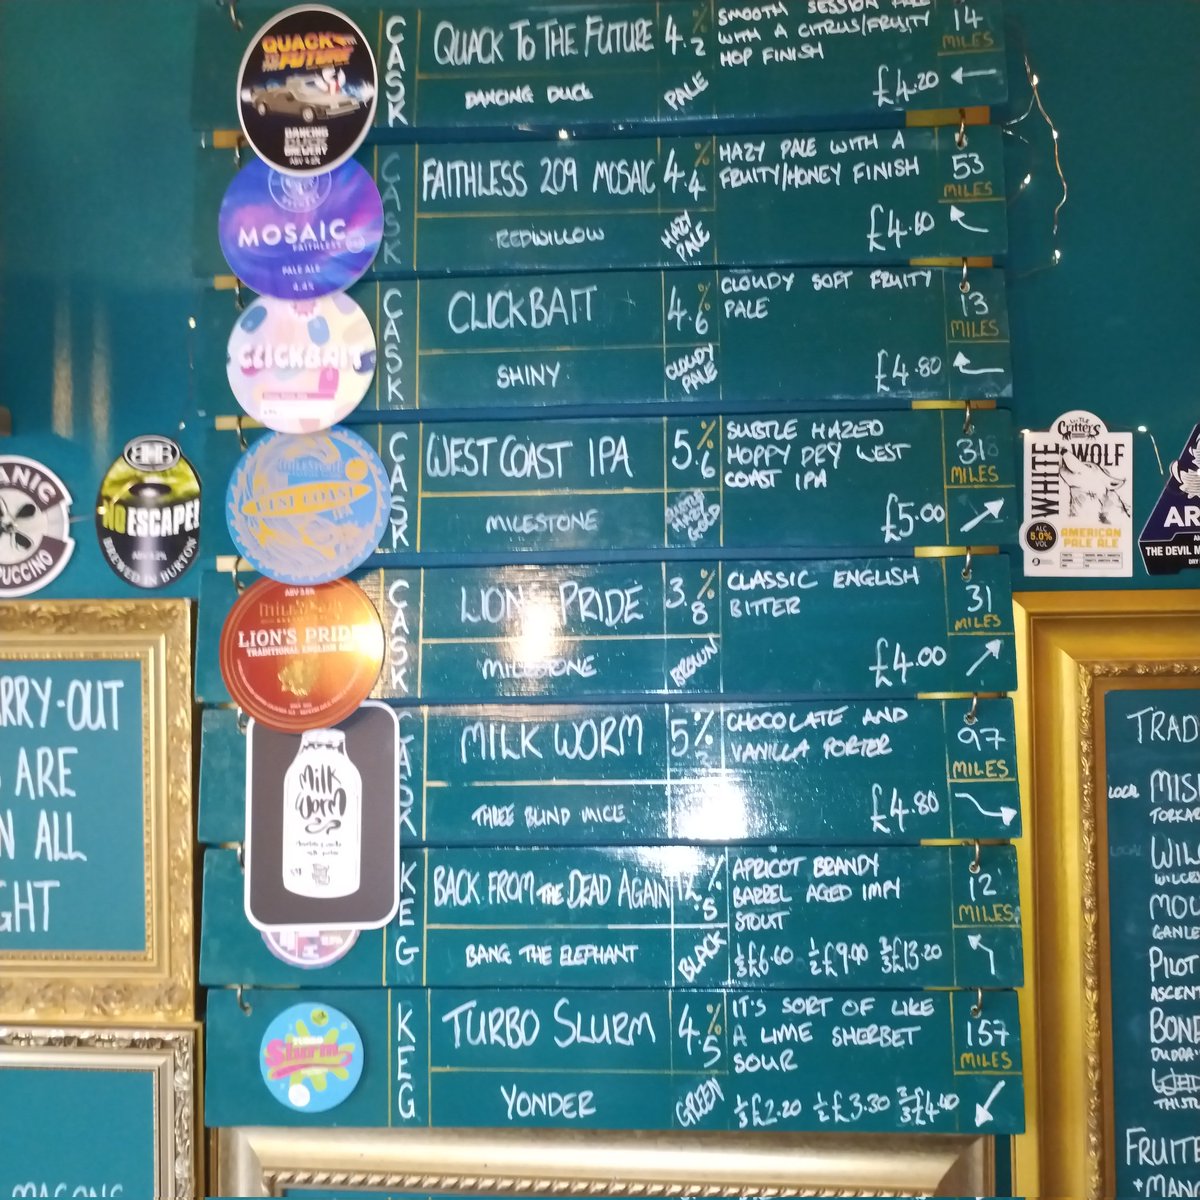 CASK
QUACK TO THE FUTURE
4.2%
SMOOTH SESSION PALE
WITH A CITRUS/FRUITY
HOP FINISH
14
MILES
DANCING DUCK
PALE
£4.20
QUACK
TO THE
FUTURE
DANCING
DUCK
BREWERY
ABV 4.2%
CASK
FAITHLESS 209 MOSAIC
4.4%
HAZY PALE WITH A
FRUITY/HONEY FINISH
53
MILES
REDWILLOW
HAZY
PALE
£4.60
MOSAIC
FAITHLESS
PALE ALE
4.4%
CASK
CLICKBAIT
4.6%
CLOUDY SOFT FRUITY
PALE
13
MILES
SHINY
CLOUDY
PALE
£4.80
CLICKBAIT
CASK
WEST COAST IPA
5.6%
SUBTLE HAZED
HOPPY DRY WEST
COAST IPA
31
MILES
MILESTONE
HAZY
GOLD
£5.00
MILESTONE
WEST COAST
IPA
CASK
LIONS PRIDE
3.8%
CLASSIC ENGLISH
BITTER
31
MILES
MILESTONE
BROWN
£4.00
ABV 3.8%
MILESTONE
LION'S PRIDE
TRADITIONAL ENGLISH ALE
CASK
MILK WORM
5%
CHOCOLATE AND
VANILLA PORTER
97
MILES
THREE BLIND MICE
£4.80
Milk
Worm
KEG
BACK FROM THE DEAD AGAIN
APRICOT BRANDY
BARREL AGED IMPY
STOUT
12
MILES
BANG THE ELEPHANT
BLACK
⅓£6.60 ½£9.90 ⅔£13.20
KEG
TURBO SLURM
4.5%
IT'S SORT OF LIKE
A LIME SHERBET
SOUR
157
MILES
YONDER
GREEN
⅓£2.20 ½£3.30 ⅔£4.40
TURBO
Slurm
ANIC
PUCCINO
BHB
NO ESCAPE!
ABV 5.2%
BREWED IN BURTON
RRY-OUT
ARE
N ALL
GHT
MAGONS
Little
Critters
WHITE
WOLF
ALC
5.0%
VOL
AMERICAN
PALE ALE
AR
THE DEVIL M
DRY
TRAD
LOCAL
MISS
TORKA
LOCAL
WILC
WILCE
MOU
GANLE
PILOT
ASCENT
BOND
DUDDA
THISTL
FRUITE
*MANG